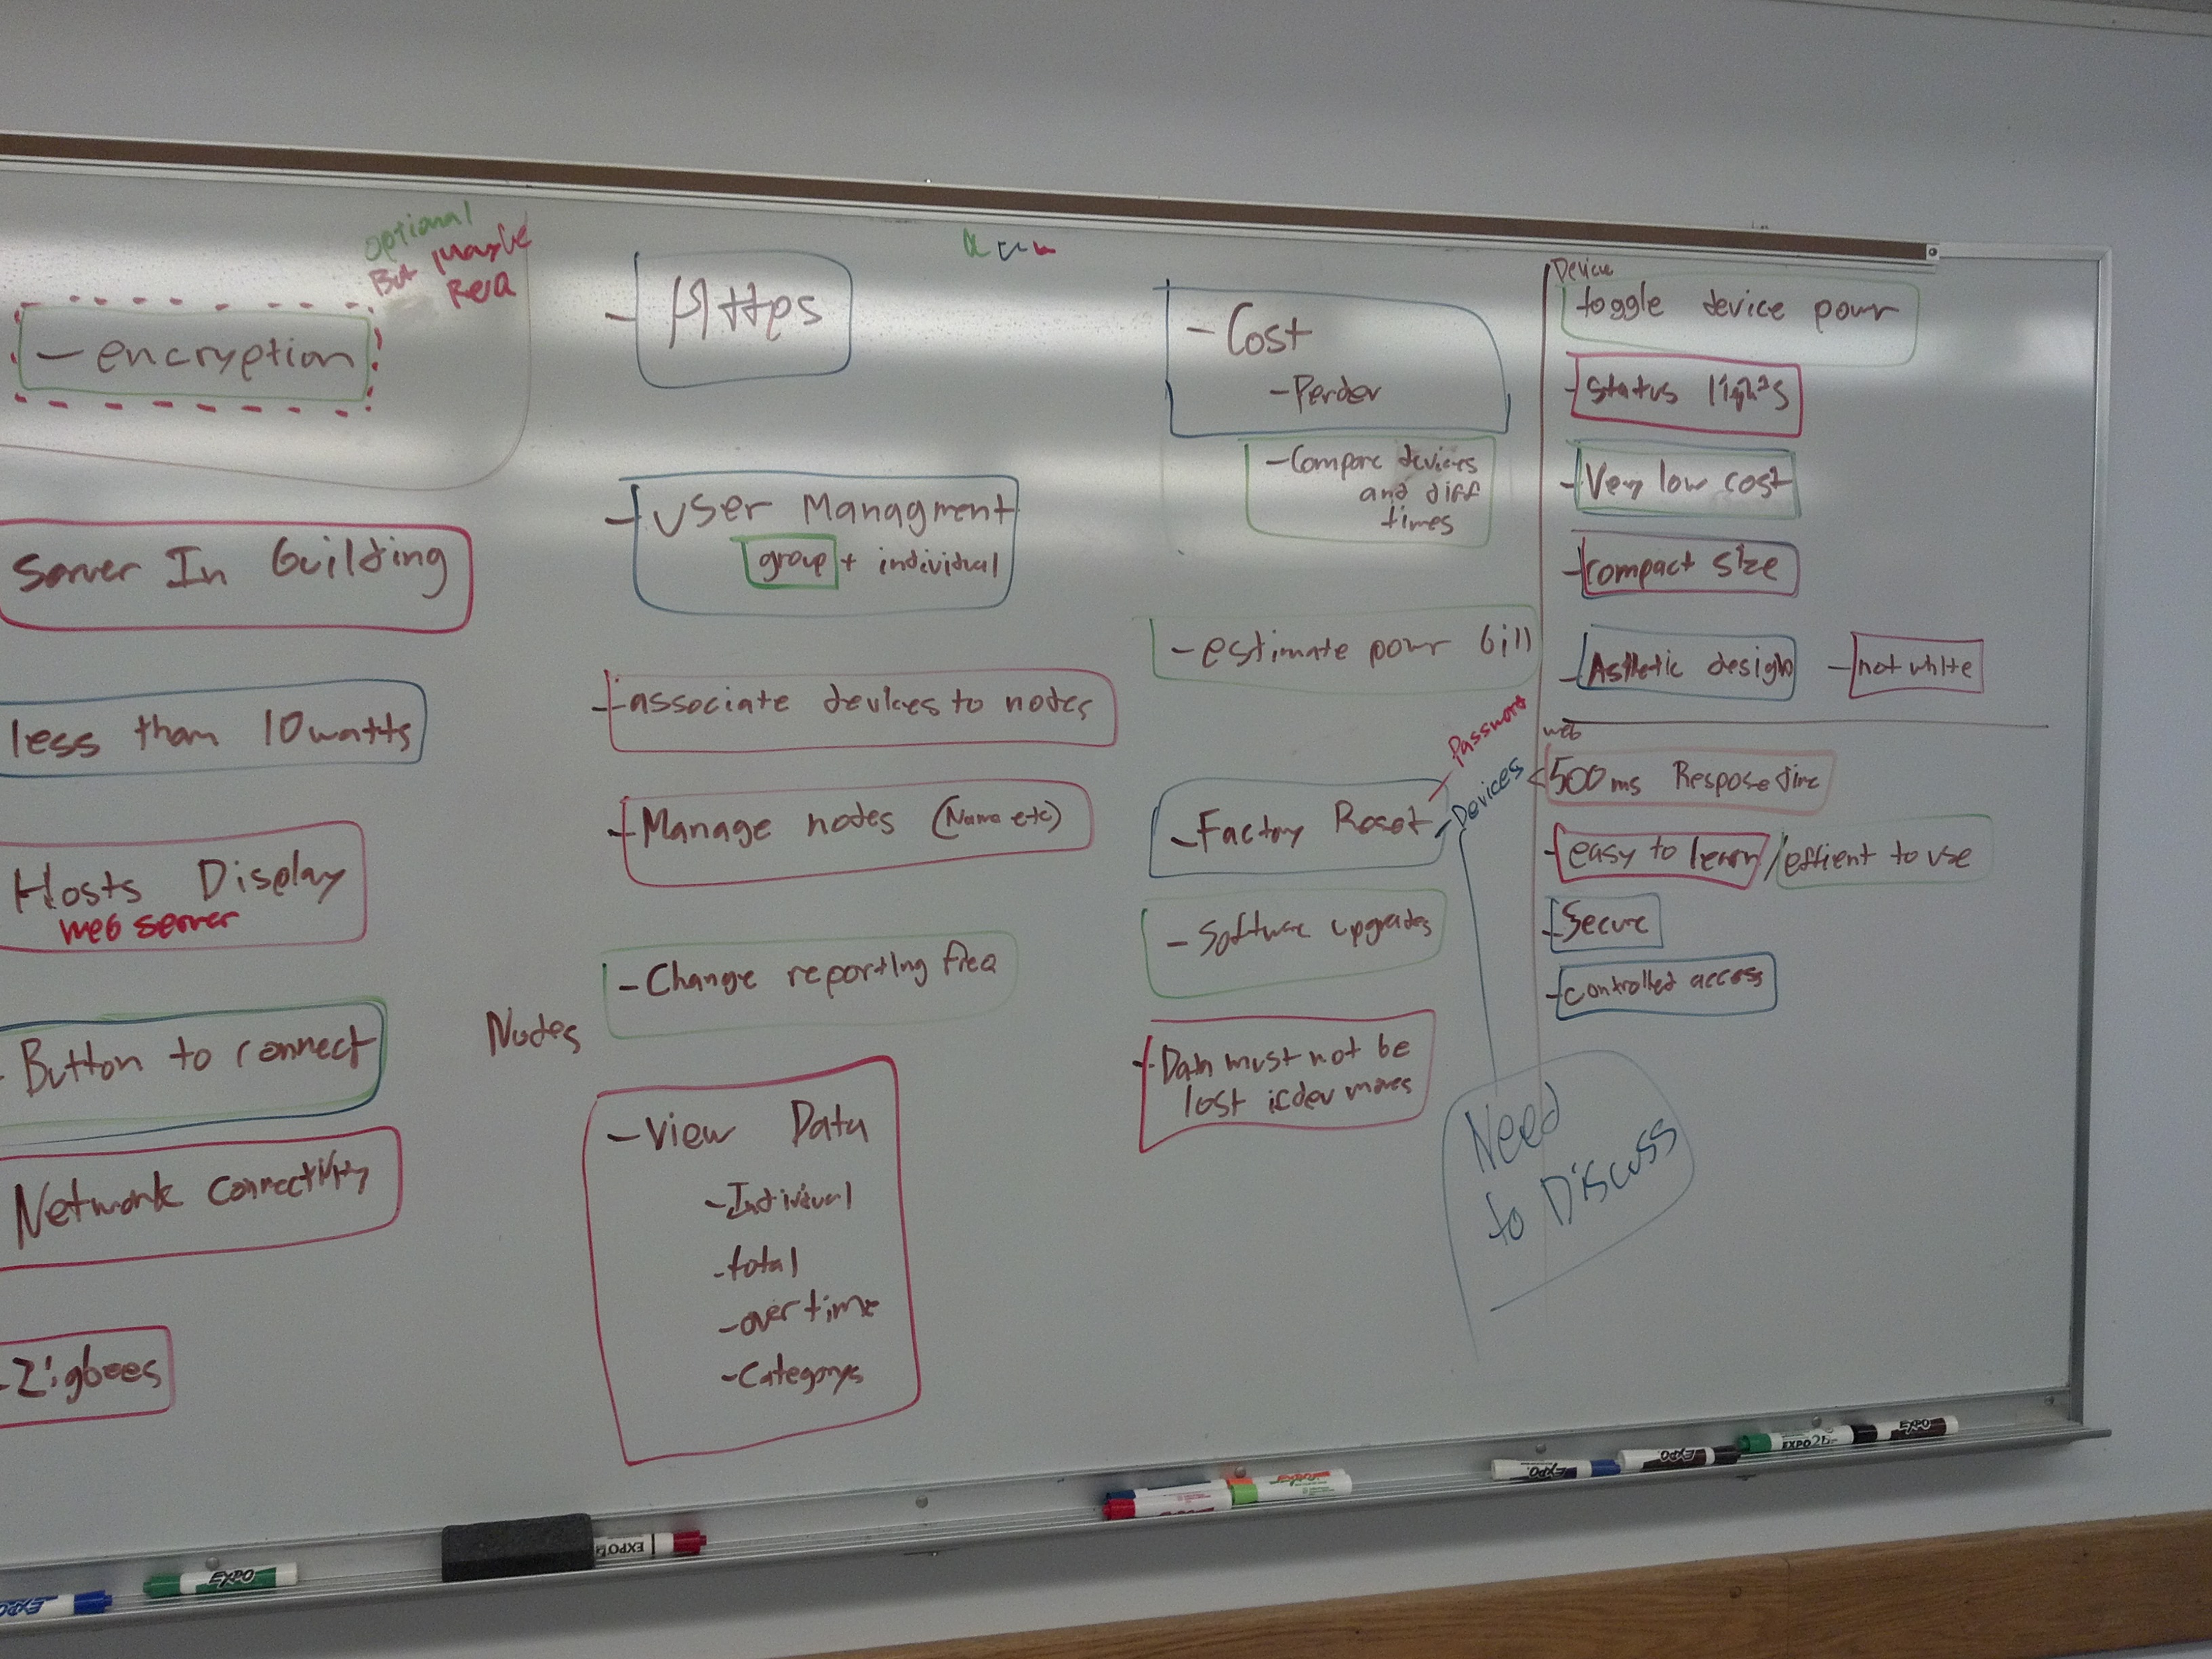 optional
But maybe
Req
- encryption
Server In building
less than 10 watts
Hosts Display
web server
- Button to connect
Network connectivity
- Zigbees
- Https
- User Managment
group + individual
- associate devices to nodes
- Manage nodes (Name etc)
- Change reporting freq
Nodes
- View Data
- Individual
- total
- over time
- Categorys
- Cost
- Per dev
- Compare devices
and diff
times
- estimate powr bill
- Factory Reset
Password
Devices
- Software upgrades
- Data must not be
lost if dev moves
Need
to Discuss
Device
toggle device powr
- Status lights
- Very low cost
- compact size
- Asthetic design - not white
web
- 500ms Respose time
- easy to learn / effient to use
- Secure
- controlled access
EXPO
EXPO
EXPO
EXPO
EXPO
EXPO
EXPO